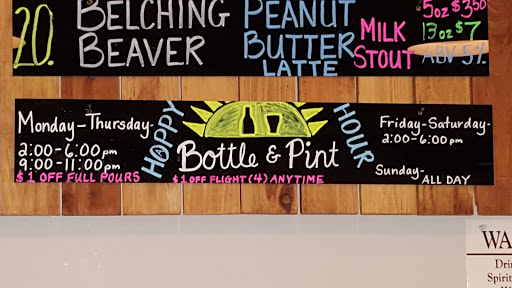 20. BELCHING BEAVER PEANUT BUTTER LATTE MILK STOUT
5oz $3.50
13oz $7
ABV 5%
HAPPY HOUR
Monday-Thursday-
2:00-6:00pm
9:00-11:00pm
$1 OFF FULL POURS
Bottle & Pint
$1 OFF FLIGHT (4) ANYTIME
Friday-Saturday-
2:00-6:00pm
Sunday-ALL DAY
WA
Drin
Spirit